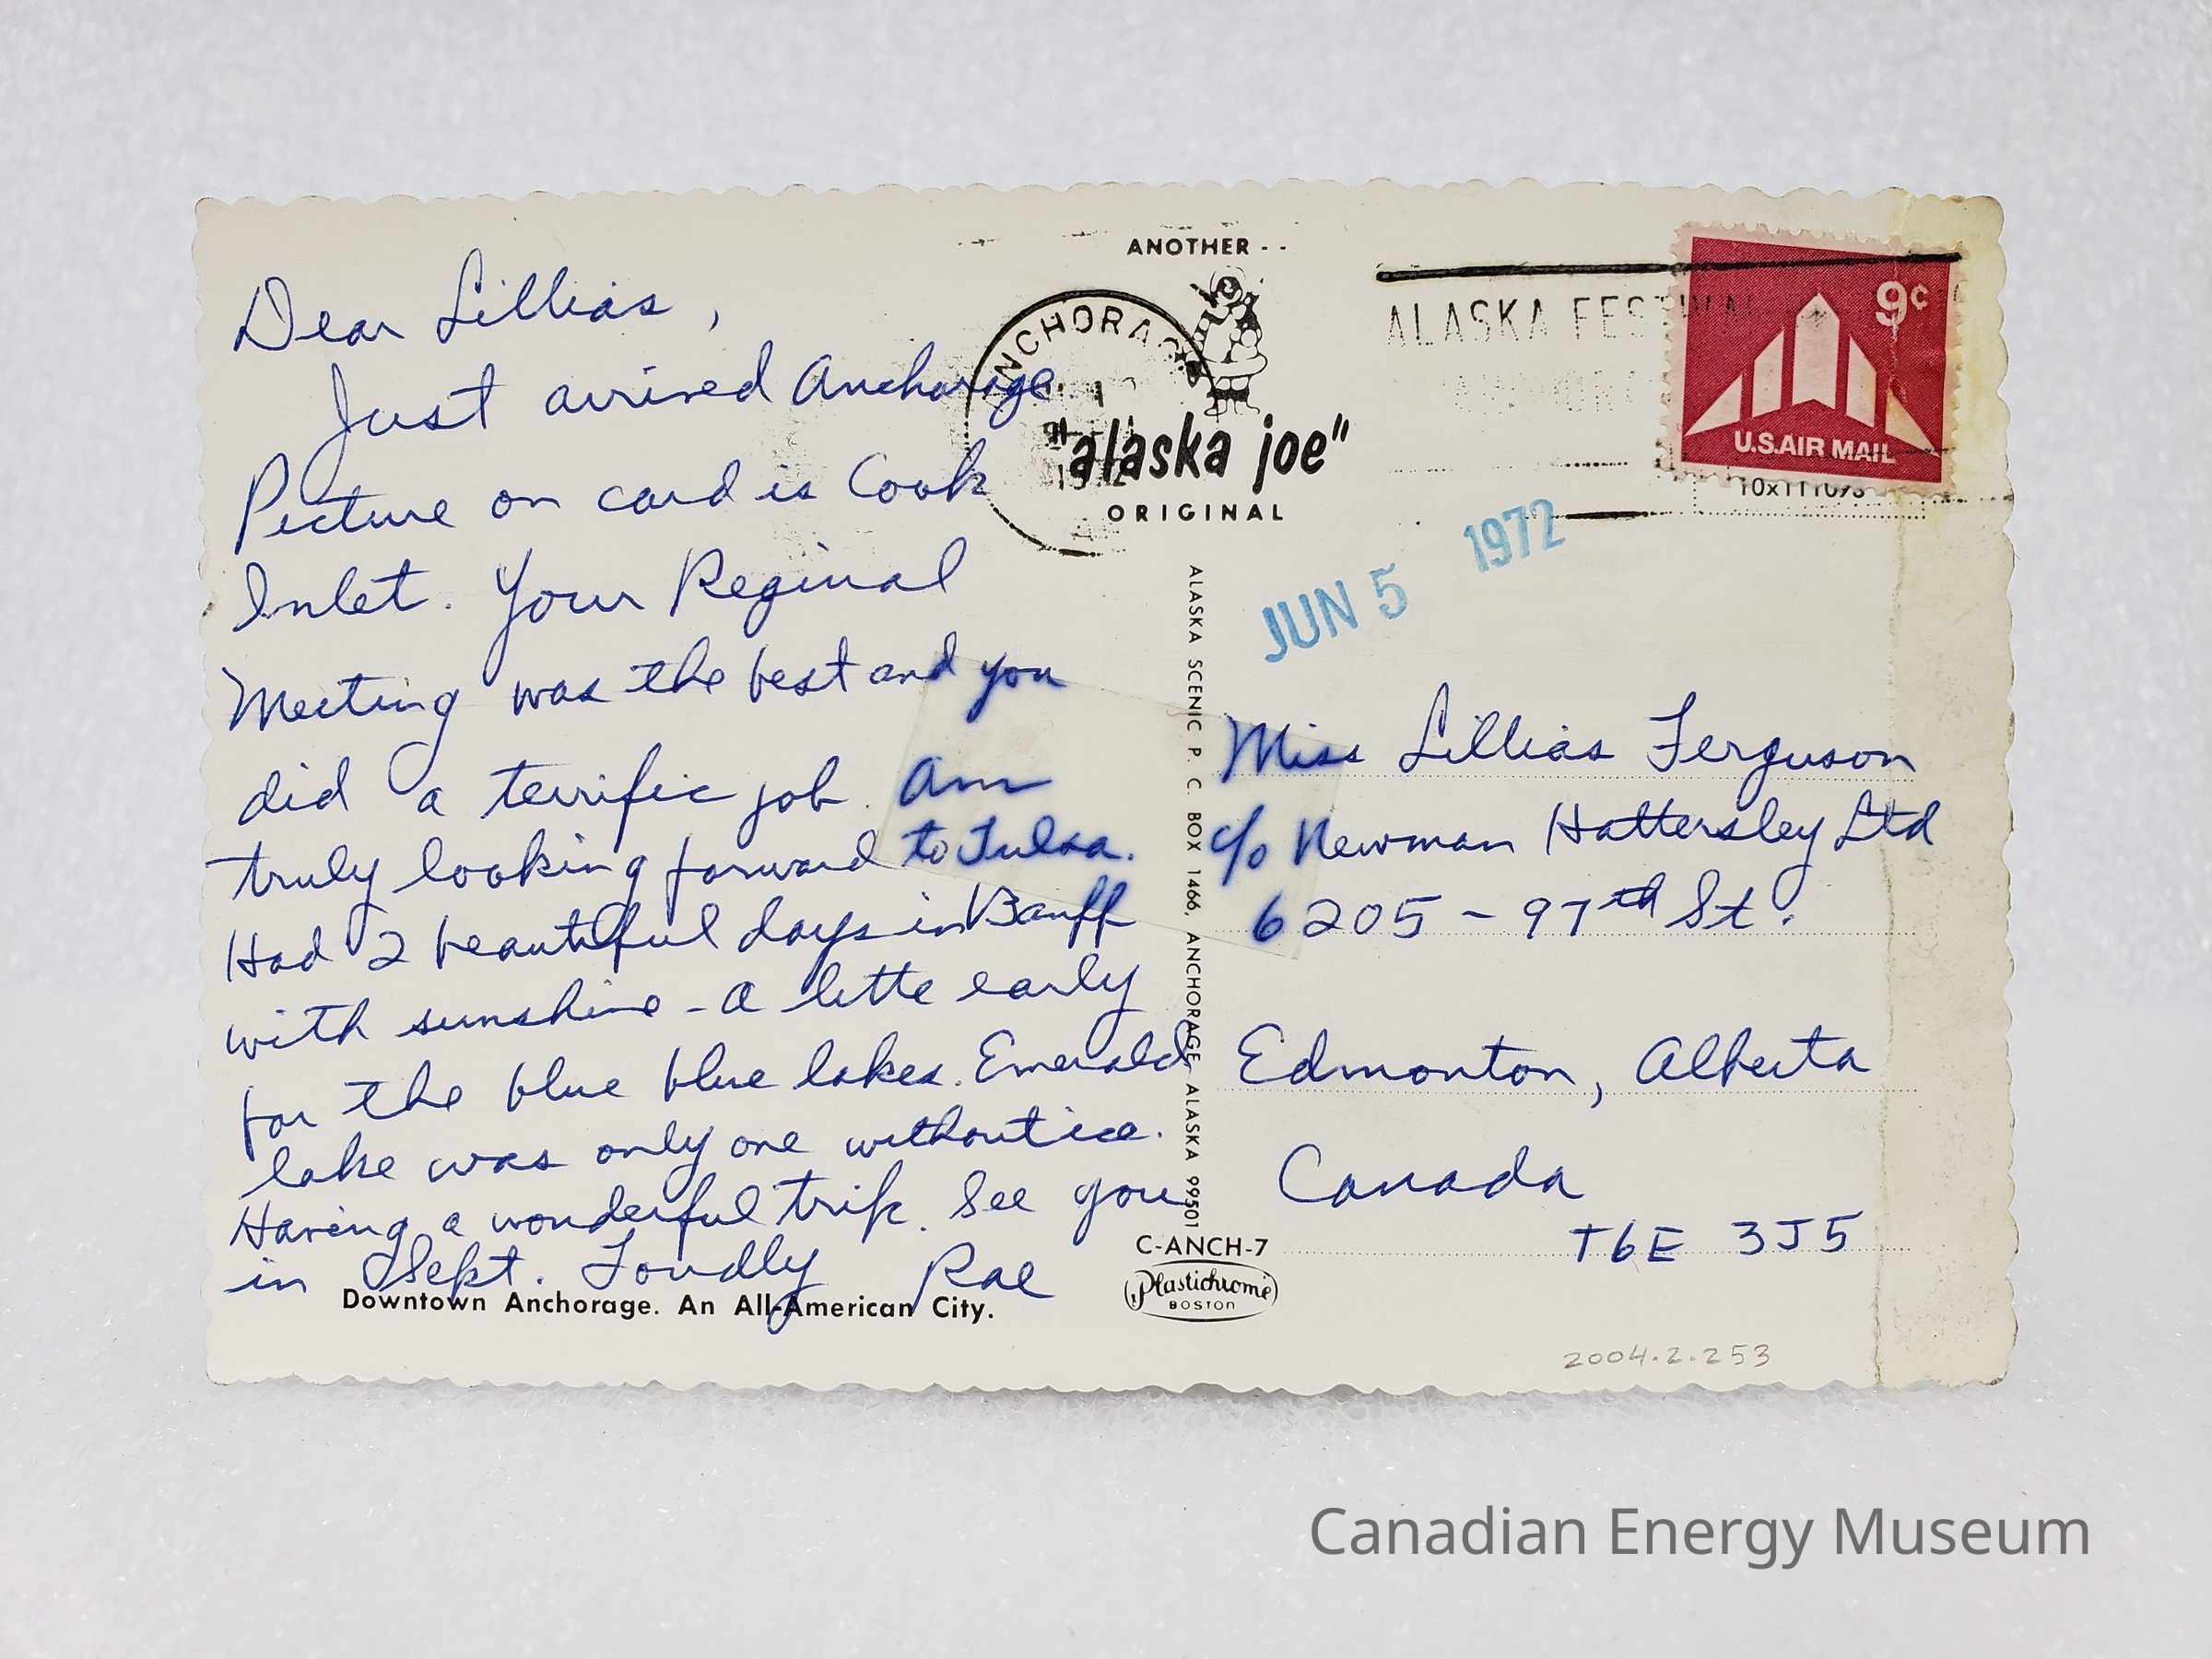 Dear Lillias,
Just arrived Anchorage
Picture on card is Cook
Inlet. Your Reginal
Meeting was the best and you
did a terrific job. Am
truly looking forward to Tulsa.
Had 2 beautiful days in Banff
with sunshine - a litte early
for the blue blue lakes. Emerald
lake was only one without ice.
Having a wonderful trip. See you
in Sept. Fondly Rae
Downtown Anchorage. An All-American City.
ANOTHER - -
"alaska joe"
ORIGINAL
ANCHORAGE
ALASKA FESTIVAL
9c
U.S. AIR MAIL
JUN 5 1972
ALASKA SCENIC P. C. BOX 1466, ANCHORAGE, ALASKA 99501
Miss Lillias Ferguson
c/o Newman Hattersley Ltd
6205 - 97th St.
Edmonton, Alberta
Canada
T6E 3J5
C-ANCH-7
Plastichrome
BOSTON
2004.2.253
Canadian Energy Museum